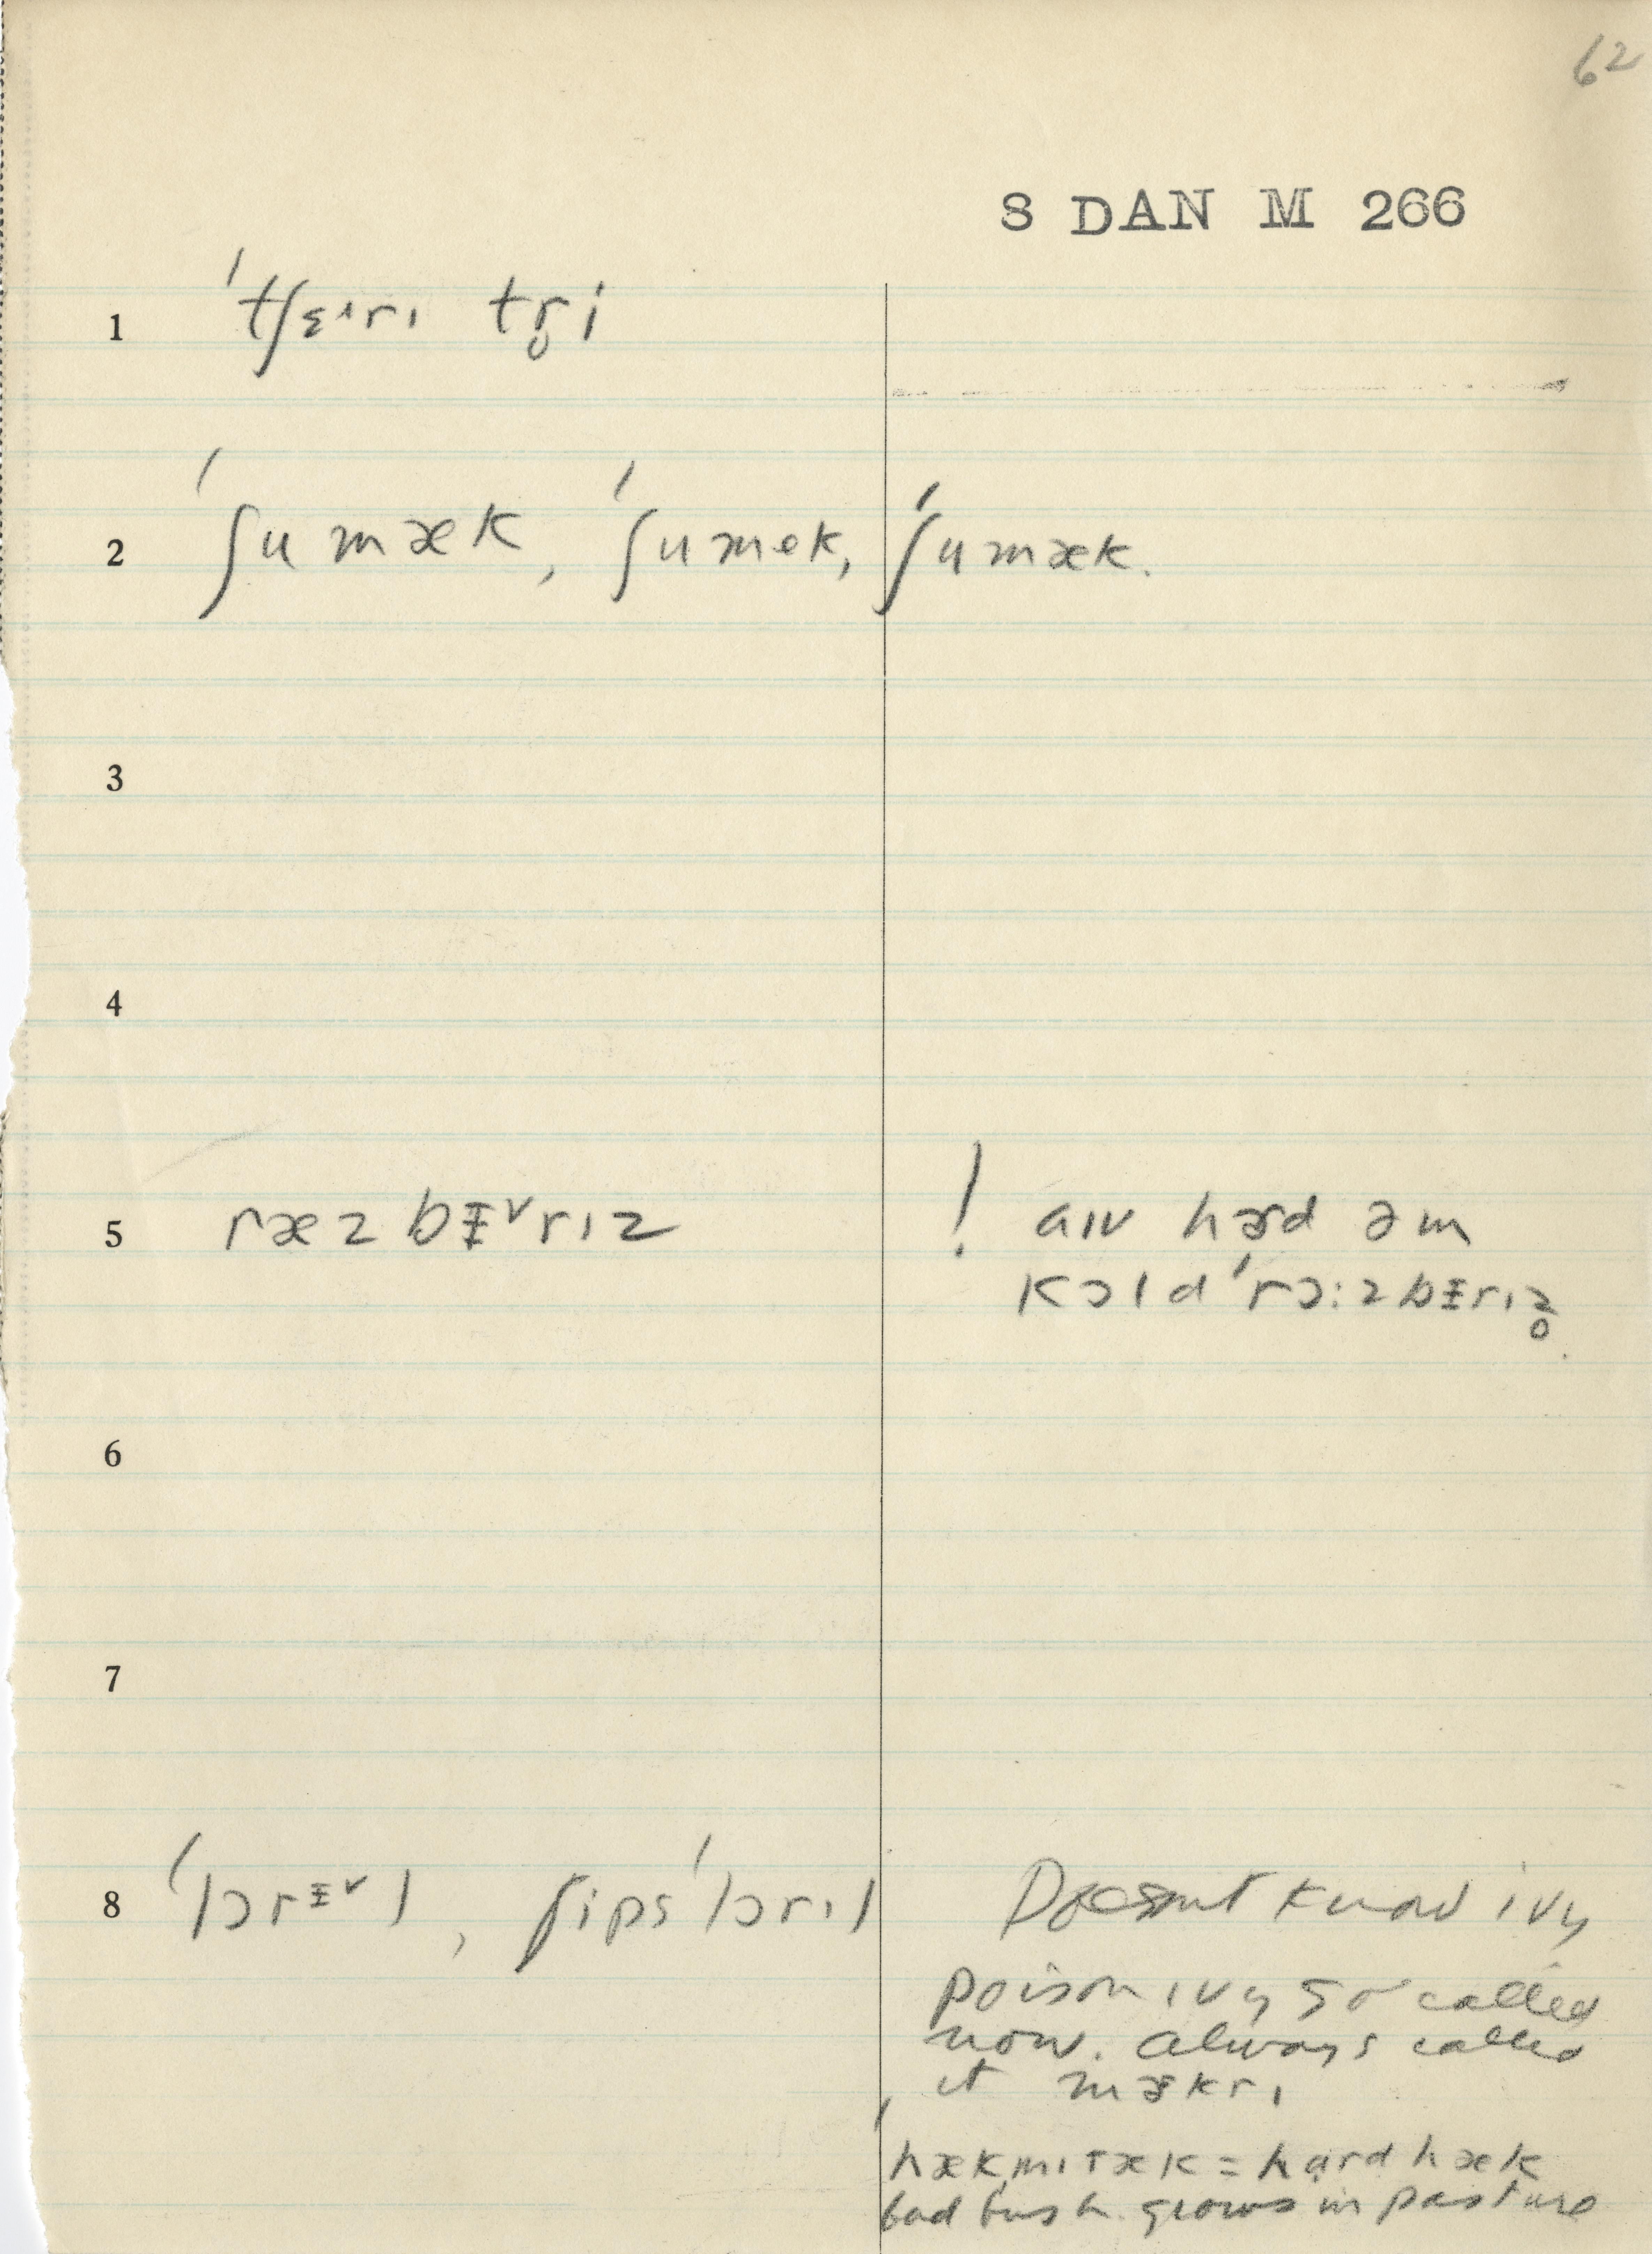 62
S DAN M 266
1 ˈtʃɛ˄rɪ tr̥i
2 ˈʃumæk, ˈʃumek, ˈʃumæk.
3
4
5 ræzbɪ˅rɪz ! aɪv hɝd əm
kɔldˈrɔ:zbɪrɪz̥
6
7
8 ˈlɔrɪ˅l, ʃipsˈlɔrɪl Doesnt know ivy
poison ivy so called
now. always called
it mɝkrɪ
ˈhækmɪtæk = hardhæk
bad bush. grows in pasture